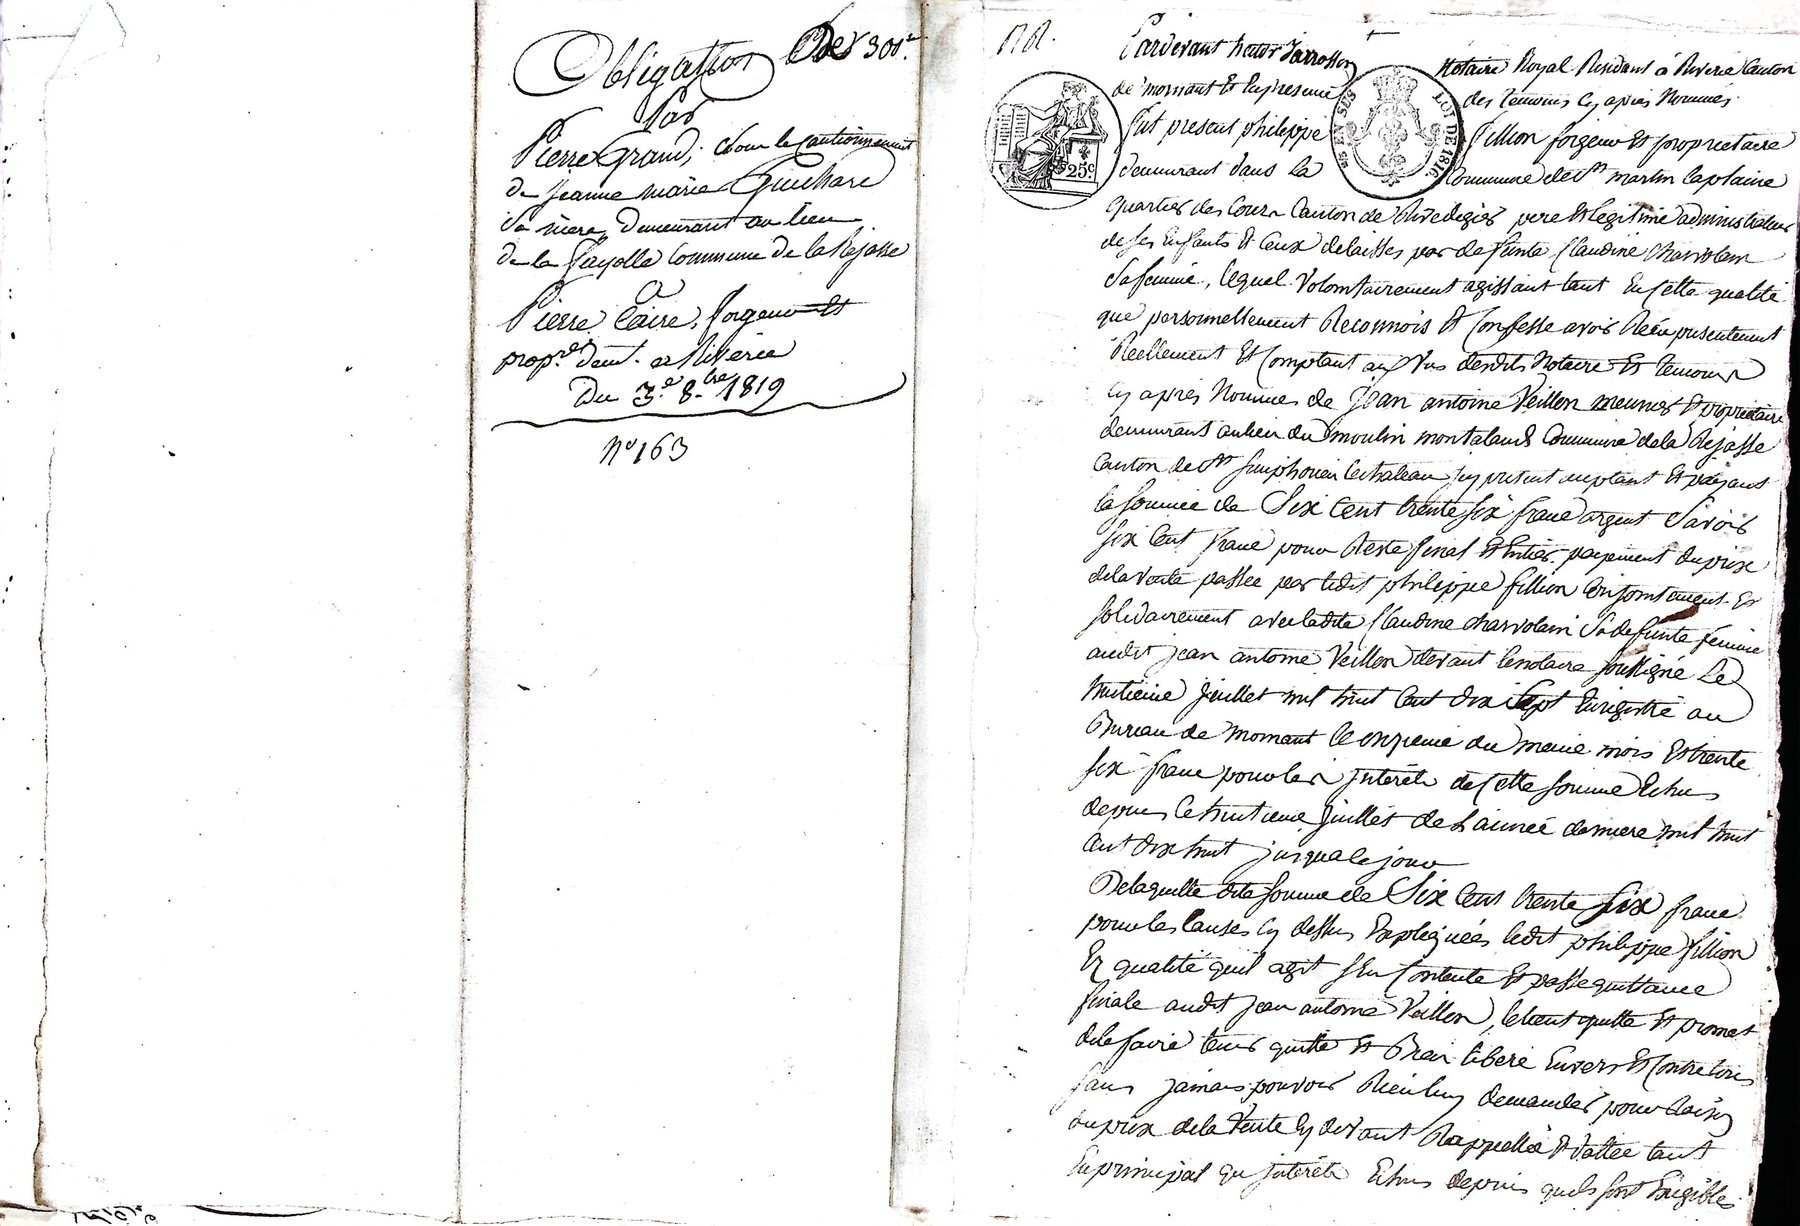 Obligation De 300.
Par
Pierre Grand, sous le Cautionnement
de jeanne marie Guichard
Sa mère, Demeurant au lieu
de la Fayolle Commune de la Rejasse
a
Pierre Caire, forgeur et
propre. demt. a Riverie
Du 3e. 8.bre 1819
No 163
Pardevant Jarrosson Notaire Royal Residant à Riverie Canton
de mornant Et En presence des temoins Cy après Nommés
fut present philippe fillion forgeur Et proprietaire
demeurant dans la Commune de St martin laplaine
25 EN SUS LOI DE 1816
25c
quartier des Cour Canton de Rivedegier pere Et legitime administrateur
de ses Enfants Et Ceux delaissés par defunte Claudine Charvolain
Sa femme, lequel Volontairement agissant tant En Cette qualité
que personnellement Reconnois Et Confesse avoir Recu presentement
Reellement Et Comptant au Vus desdits Notaire Et temoins
Cy après Nommés de jean antoine Veillon meunier Et proprietaire
demeurant au lieu du moulin montaland Commune de la Rejasse
Canton de St Simphorien lechateau Cy present acceptant Et payant
la Somme de Six Cent trente Six franc argent Savoir
Six Cent franc pour Reste final Et Entier payement du prix
de la Vente passée par ledit philippe fillion Conjointement Et
Solidairement avec ladite Claudine Charvolain Sa defunte femme
audit jean antoine Veillon devant le notaire soussigné Le
huitieme juillet mil huit Cent dix Sept Enregistré au
Bureau de Mornant le onzieme du meme mois Et trente
six franc pour les jnterets de Cette Somme Echus
depuis le huitieme juillet de L'année derniere mil huit
Cent dix huit jusqua le jour
De laquelle dite Somme de Six Cent trente Six franc
pour les Causes Cy dessus Expliquées ledit philippe fillion
En qualité quil agit S'En Contente Et passe quittance
finale audit jean antoine Veillon, le tient quitte Et promet
de le faire tenir quitte Et Bien liberé Envers Et Contre tous
sans jamais pouvoir Rien luy demander pour Raison
du prix de la Vente Cy devant Rappellée Et datée tant
En principal qu jnterets Echus depuis quils sont Exigible